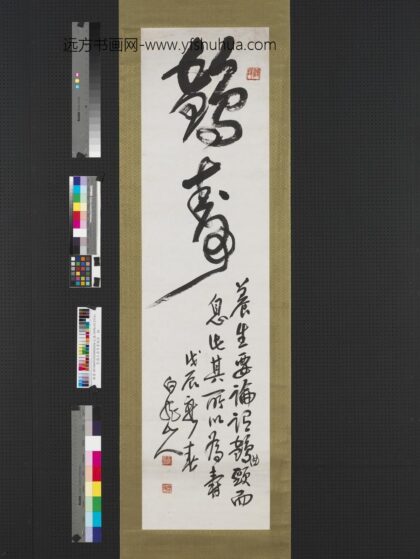 远方书画网-www.yfshuhua.com
鶴壽
養生要論謂鶴曲頸而
息此其所以為壽
戊辰新春
白龍山人